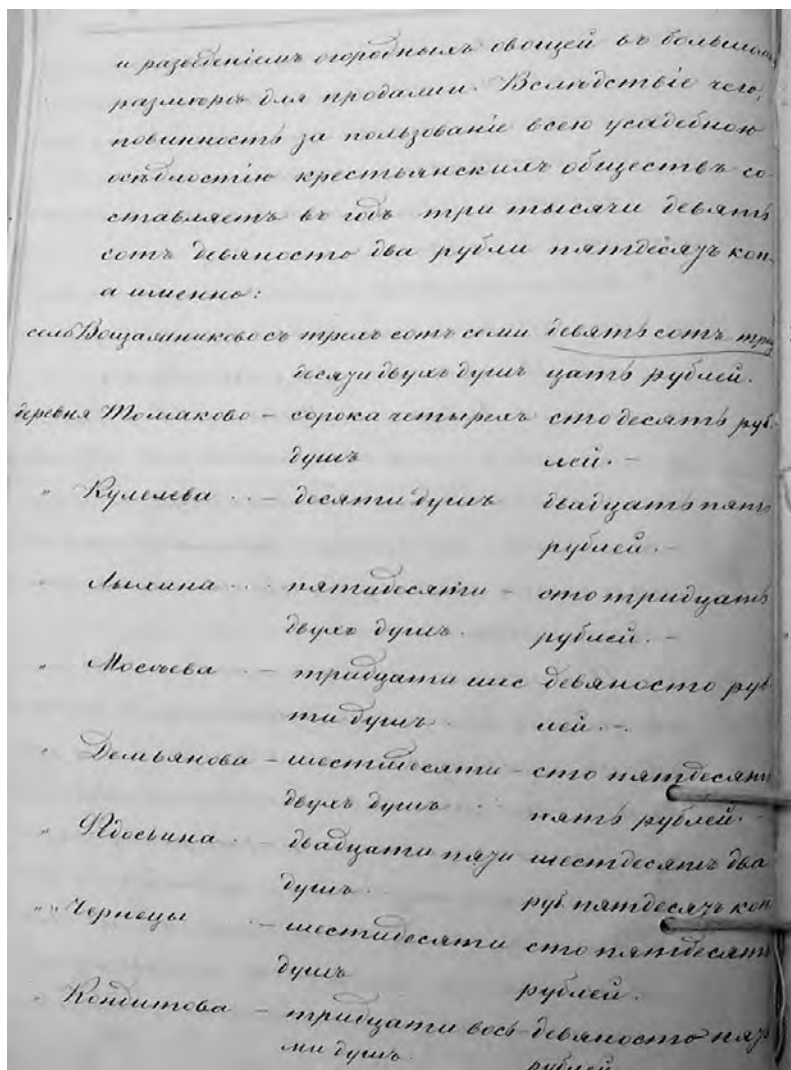 и разведеніемъ огородныхъ овощей въ большомъ
размѣрѣ для продажи. Вслѣдствіе чего,
повинность за пользованіе всею усадебною
осѣдлостію крестьянскихъ обществъ со-
ставляетъ въ годъ три тысячи девять
сотъ девяносто два рубли пятдесятъ коп.
а именно:
село Вощажниково съ трехъ сотъ семи девять сотъ три
десяти двухъ душъ цать рублей.
деревня Толмаково – сорока четырехъ сто десять руб-
душъ лей. –
" Кулелева . . – десяти душъ двадцать пять
рублей. –
" Лыхина . . . пятидесяти – сто тридцать
двухъ душъ. рублей. –
" – тридцати шес девяносто руб-
ти душъ. лей. –.
" Демьянова – шестидесяти – сто пятдесятъ
двухъ душъ . . пять рублей. –
" Ѳдосьина . – двадцати пяти шестдесятъ два
душъ. руб. пятдесятъ коп
" " Чернецы – шестидесяти сто пятдесятъ
душъ рублей.
" – тридцати вось девяносто пять
ми душъ. рублей